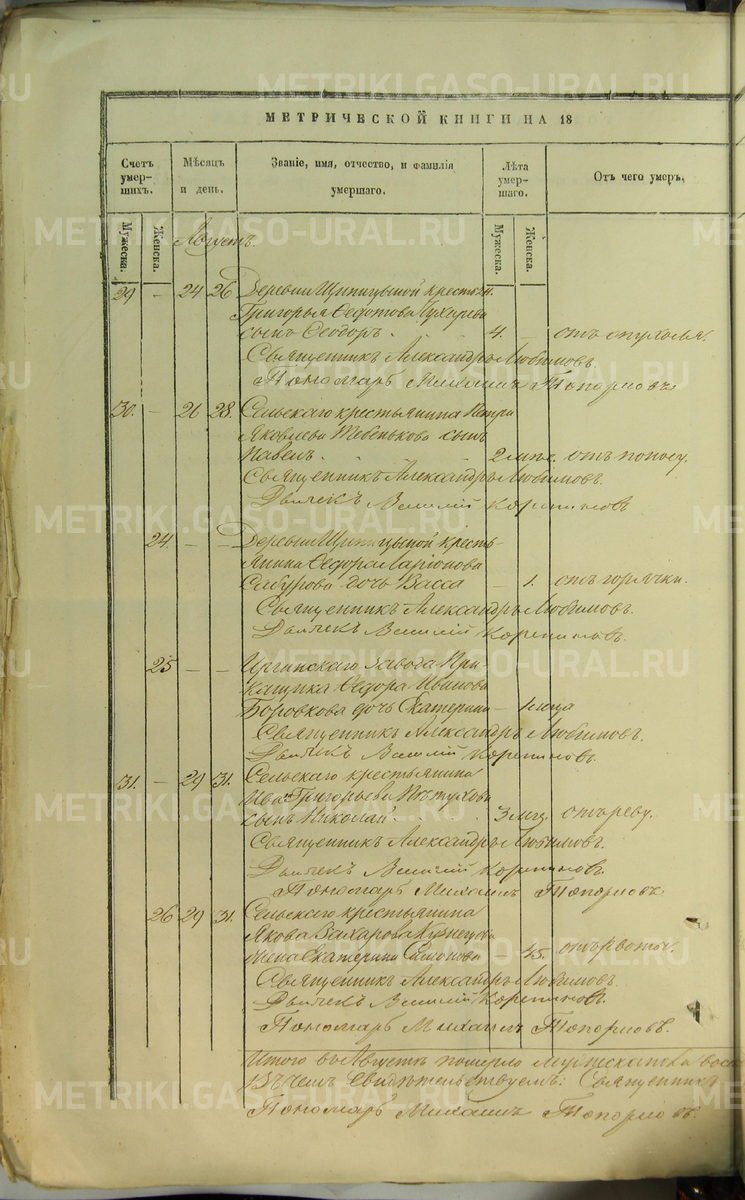 МЕТРИЧЕСКОЙ КНИГИ НА 18
Счетъ умер-шихъ.
Мѣсяцъ и день.
Званіе, имя, отчество, и фамилія умершаго.
Лѣта умер-шаго.
Отъ чего умеръ.
Мужеска.
Женска.
Мужеска.
Женска.
Августъ.
29 - 24 26 Деревни крестьян.
Григорья Федотова
сынъ Феодоръ. 4. - отъ опухолья.
Священникъ Александръ Любимовъ.
Пономарь Михаилъ Топорковъ
30. - 26 28. Сельскаго крестьянина Петра
Яковлева сынъ
Павелъ. 2 мпс. отъ поносу.
Священникъ Александръ Любимовъ.
Дьячекъ Василій
24 - - Деревни кресть-
янина Федора Ларіонова
дочь Васса - 1. отъ горячки.
Священникъ Александръ Любимовъ.
Дьячекъ Василій
25 - - Иргинскаго завода При-
кащика Федора Иванова
Боровкова дочь Екатерина -
Священникъ Александръ Любимовъ.
Дьячекъ Василій
31. - 29 31. Сельскаго крестьянина
Ивана Григорьева Пѣтухова
сынъ Николай. 3 мца. отъ реву.
Священникъ Александръ Любимовъ.
Дьячекъ Василій
Пономарь Михаилъ Топорковъ
26 29 31. Сельскаго крестьянина
Якова Захарова Кузнецова
жена Екатерина Симонова - 45. отъ рвоты.
Священникъ Александръ Любимовъ.
Дьячекъ Василій
Пономарь Михаилъ Топорковъ.
Итого въ Августѣ померло мужеска пола
Въ чемъ свидѣтельствуемъ: Священникъ
Пономарь Михаилъ Топорковъ.
METRIKI.GASO-URAL.RU